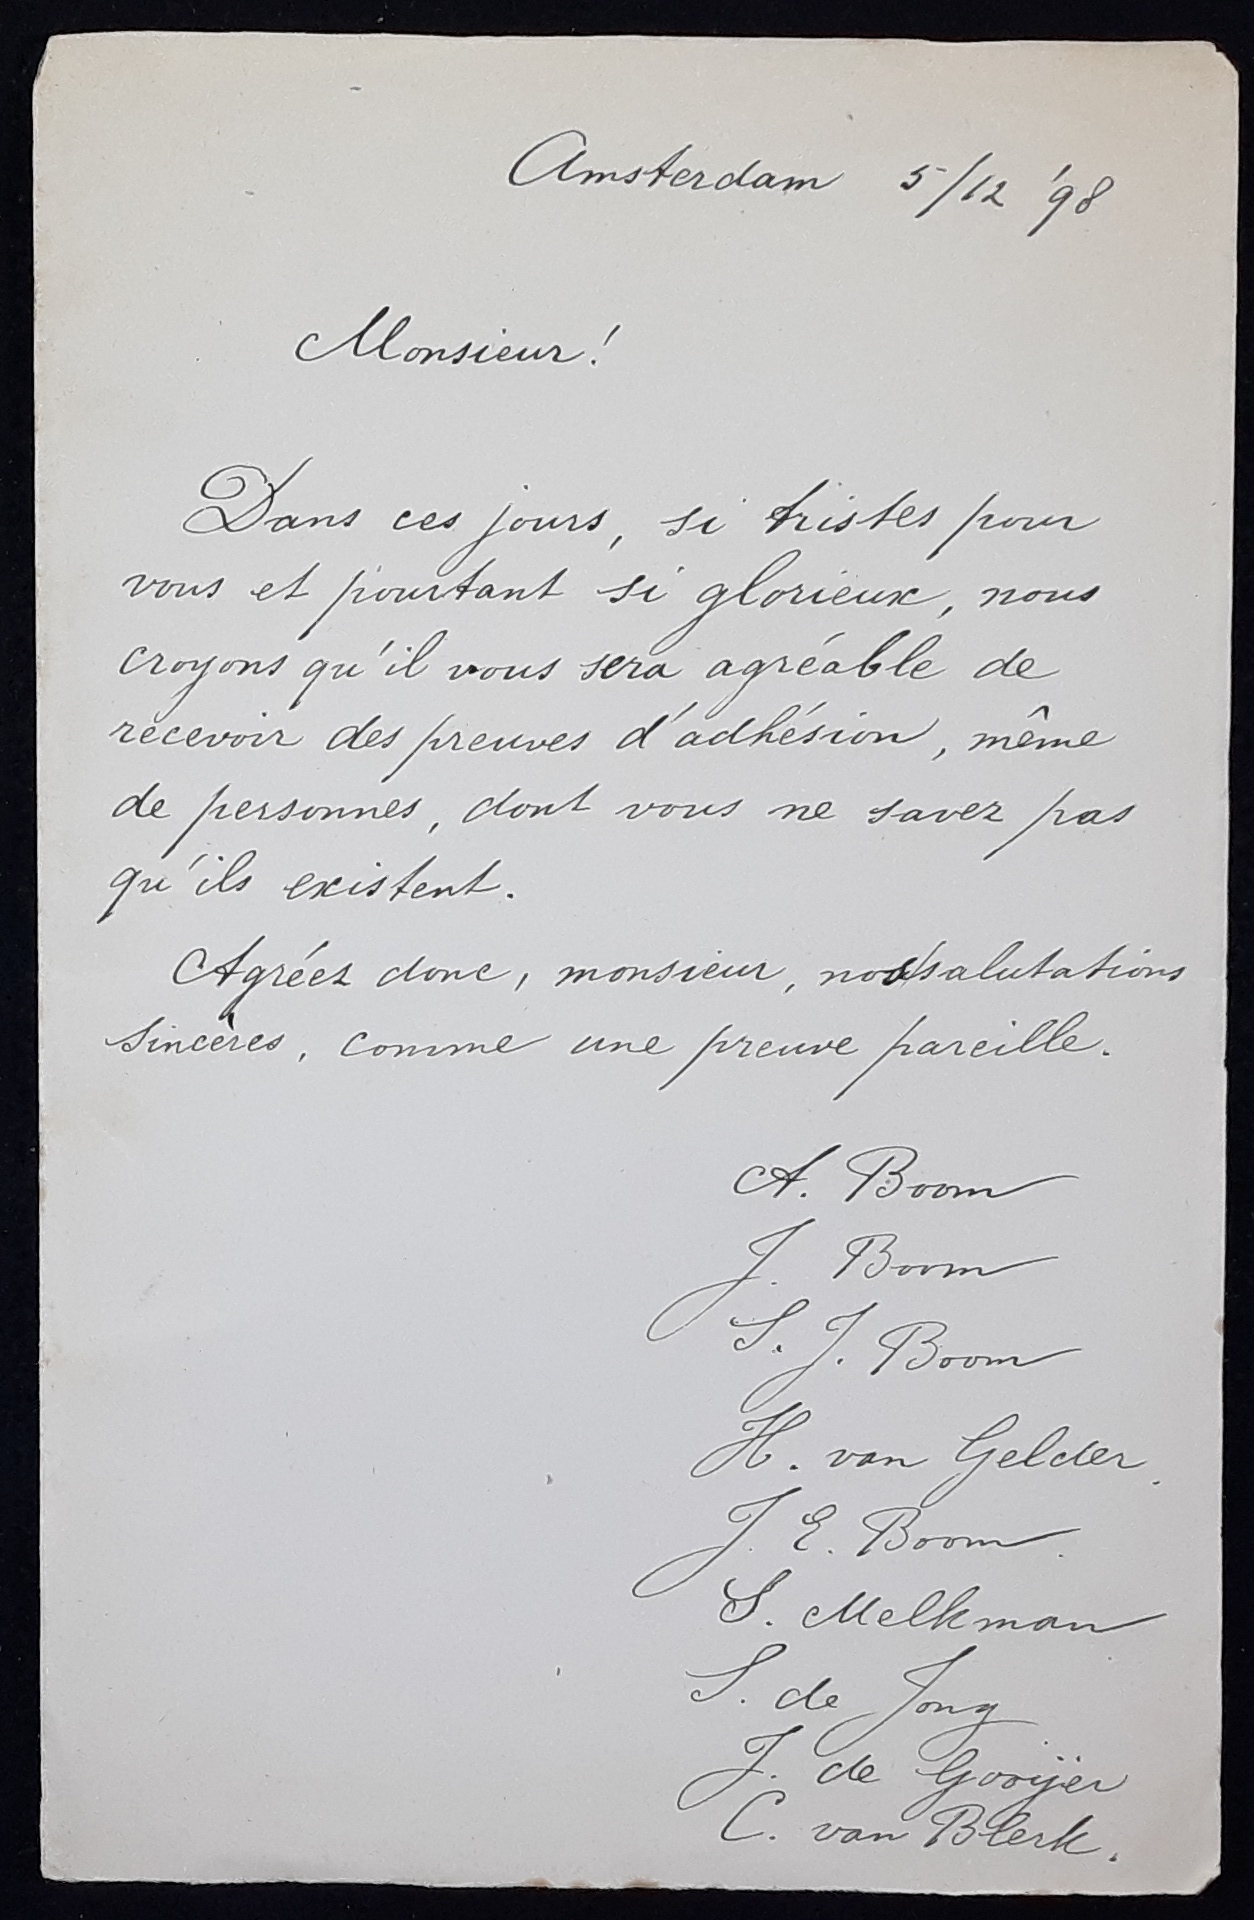 Amsterdam 5/12 '98
Monsieur!
Dans ces jours, si tristes pour
vous et pourtant si glorieux, nous
croyons qu'il vous sera agréable de
recevoir des preuves d'adhésion, même
de personnes, dont vous ne savez pas
qu'ils existent.
Agréez donc, monsieur, nos salutations
sincères, comme une preuve pareille.
A. Boom
J. Boom
S. J. Boom
H. van Gelder.
J. E. Boom.
S. Melkman
S. de Jong
J. de Gooijer
C. van Blerk.